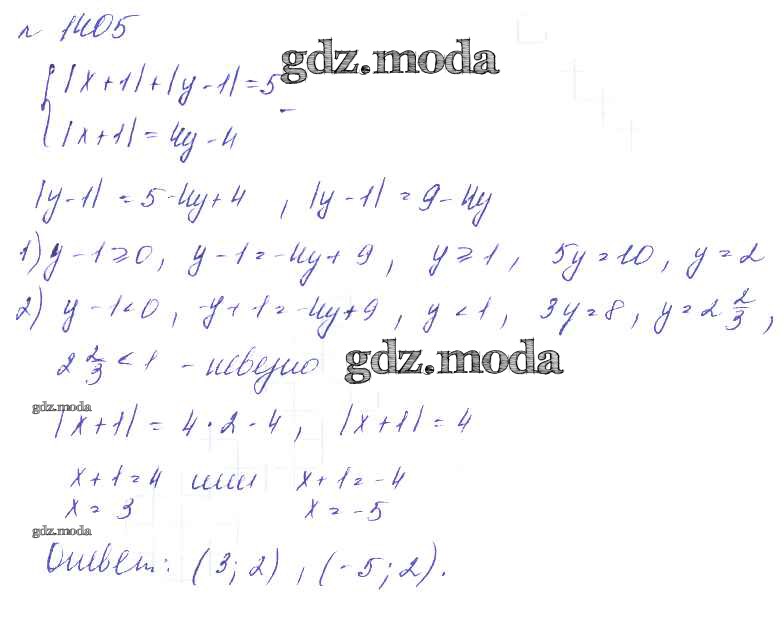 № 1405
gdz.moda
{ |x+1|+|y-1|=5
|x+1|=4y-4
|y-1| = 5-4y+4 , |y-1| = 9-4y
1) y-1≥0, y-1=-4y+9, y≥1, 5y=10, y=2
2) y-1<0, -y+1=-4y+9, y<1, 3y=8, y=2 2/3,
2 2/3 < 1 - неверно gdz.moda
gdz.moda
|x+1| = 4·2-4, |x+1| = 4
x+1=4 или x+1=-4
x=3 x=-5
gdz.moda
Ответ: (3;2), (-5;2).